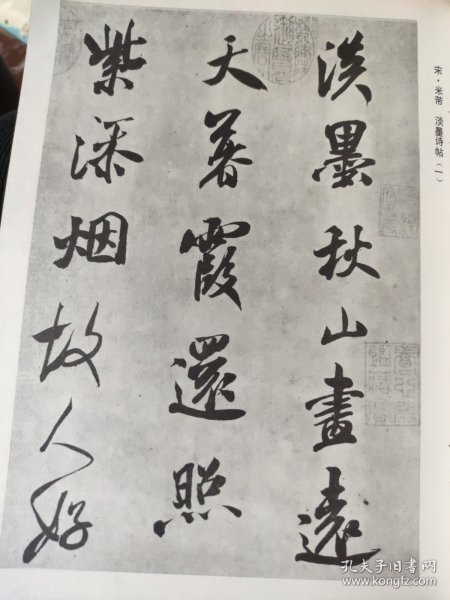 宋·米芾 淡墨诗帖（一）
淡墨秋山畫遠
天暮霞還照
紫添烟故人好
孔夫子旧书网
www.kongfz.com